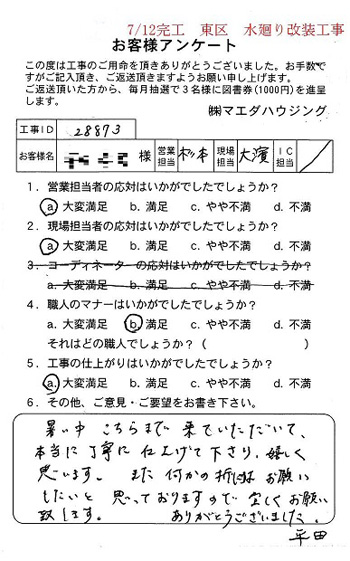 7/12完工 東区 水廻り改装工事
お客様アンケート
この度は工事のご用命を頂きありがとうございました。お手数で
すがご記入頂き、ご返送頂きますようお願い申し上げます。
ご返送頂いた方から、毎月抽選で3名様に図書券(1000円)を進呈
します。
㈱マエダハウジング
工事ID 28873
お客様名 様 営業担当 杉本 現場担当 大濱 IC担当
1．営業担当者の応対はいかがでしたでしょうか？
a. 大変満足 b. 満足 c. やや不満 d. 不満
2．現場担当者の応対はいかがでしたでしょうか？
a. 大変満足 b. 満足 c. やや不満 d. 不満
3．コーディネーターの応対はいかがでしたでしょうか？
a. 大変満足 b. 満足 c. やや不満 d. 不満
4．職人のマナーはいかがでしたでしょうか？
a. 大変満足 b. 満足 c. やや不満 d. 不満
それはどの職人でしょうか？（ ）
5．工事の仕上がりはいかがでしたでしょうか？
a. 大変満足 b. 満足 c. やや不満 d. 不満
6．その他、ご意見・ご要望をお書き下さい。
暑い中 こちらまで 来ていただいて、
本当に 丁寧に 仕上げて 下さり、嬉しく
思います。 また 何かの折には お願い
したいと 思っておりますので 宜しく お願い
致します。 ありがとうございました。
平田